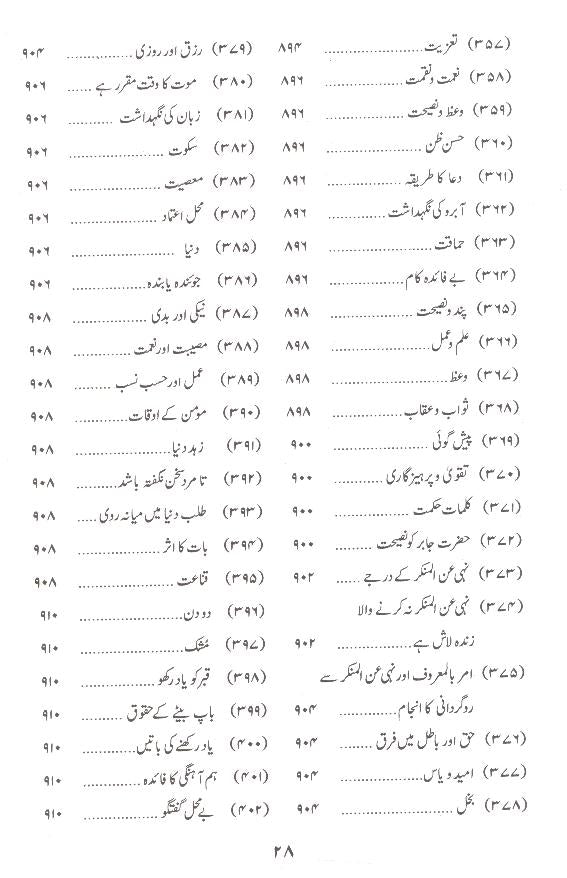 (۳۵۷) تعزیت .................... ۸۹۴
(۳۵۸) نعمت و نقمت .................... ۸۹۶
(۳۵۹) وعظ و نصیحت .................... ۸۹۶
(۳۶۰) حسن ظن .................... ۸۹۶
(۳۶۱) دعا کا طریقہ .................... ۸۹۶
(۳۶۲) آبرو کی نگہداشت .................... ۸۹۶
(۳۶۳) حماقت .................... ۸۹۶
(۳۶۴) بے فائدہ کام .................... ۸۹۶
(۳۶۵) پند و نصیحت .................... ۸۹۸
(۳۶۶) علم و عمل .................... ۸۹۸
(۳۶۷) وعظ .................... ۸۹۸
(۳۶۸) ثواب و عقاب .................... ۸۹۸
(۳۶۹) پیش گوئی .................... ۹۰۰
(۳۷۰) تقویٰ و پرہیز گاری .................... ۹۰۰
(۳۷۱) کلمات حکمت .................... ۹۰۰
(۳۷۲) حضرت جابر کو نصیحت .......... ۹۰۰
(۳۷۳) نہی عن المنکر کے درجے ...... ۹۰۲
(۳۷۴) نہی عن المنکر نہ کرنے والا
زندہ لاش ہے .................... ۹۰۲
(۳۷۵) امر بالمعروف اور نہی عن المنکر سے
روگردانی کا انجام .................... ۹۰۴
(۳۷۶) حق اور باطل میں فرق .......... ۹۰۴
(۳۷۷) امید و یاس .................... ۹۰۴
(۳۷۸) بخل .................... ۹۰۴
(۳۷۹) رزق اور روزی .................... ۹۰۴
(۳۸۰) موت کا وقت مقرر ہے ...... ۹۰۶
(۳۸۱) زبان کی نگہداشت .......... ۹۰۶
(۳۸۲) سکوت .................... ۹۰۶
(۳۸۳) معصیت .................... ۹۰۶
(۳۸۴) محل اعتماد .................... ۹۰۶
(۳۸۵) دنیا .................... ۹۰۶
(۳۸۶) جوئندہ یابندہ .................... ۹۰۶
(۳۸۷) نیکی اور بدی .................... ۹۰۸
(۳۸۸) مصیبت اور نعمت .................... ۹۰۸
(۳۸۹) عمل اور حسب نسب .......... ۹۰۸
(۳۹۰) مومن کے اوقات .................... ۹۰۸
(۳۹۱) زہد دنیا .................... ۹۰۸
(۳۹۲) تا مرد سخن نگفتہ باشد .......... ۹۰۸
(۳۹۳) طلب دنیا میں میانہ روی ..... ۹۰۸
(۳۹۴) بات کا اثر .................... ۹۰۸
(۳۹۵) قناعت .................... ۹۰۸
(۳۹۶) دو دن .................... ۹۱۰
(۳۹۷) مُشک .................... ۹۱۰
(۳۹۸) قبر کو یاد رکھو .................... ۹۱۰
(۳۹۹) باپ بیٹے کے حقوق .......... ۹۱۰
(۴۰۰) یاد رکھنے کی باتیں .................... ۹۱۰
(۴۰۱) ہم آہنگی کا فائدہ .................... ۹۱۰
(۴۰۲) بے محل گفتگو .................... ۹۱۰
۲۸